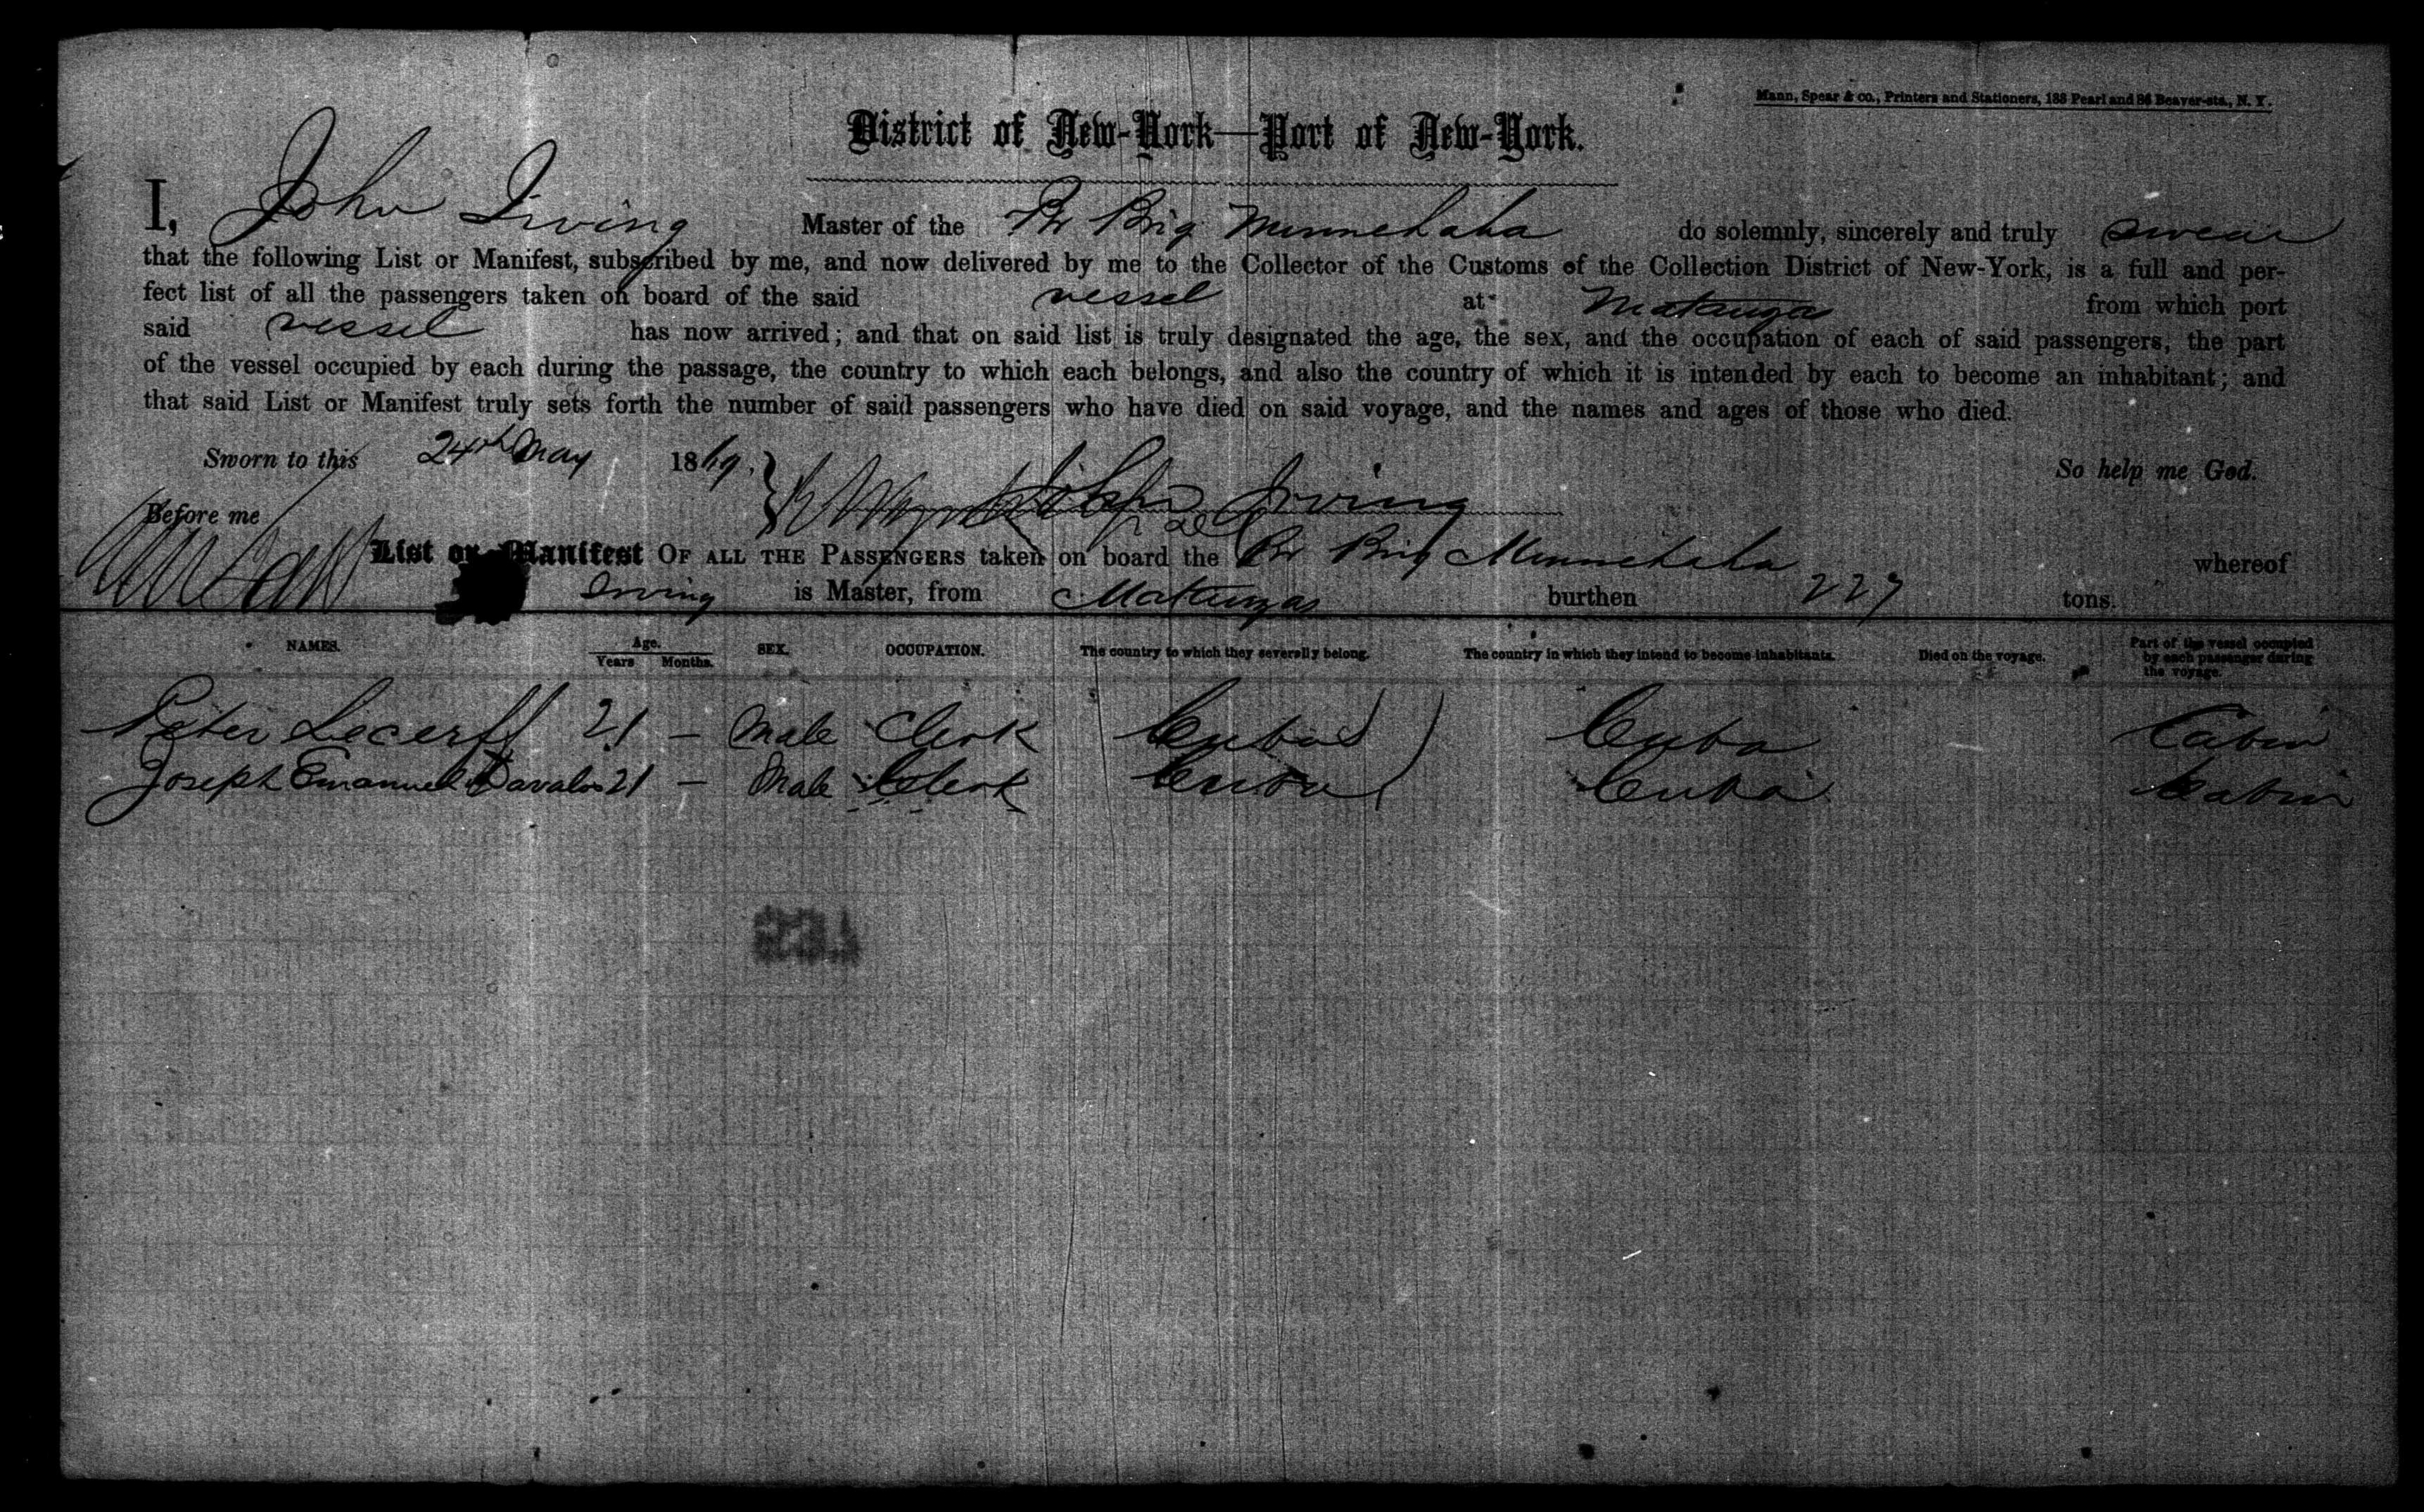 Mann, Spear & co., Printers and Stationers, 188 Pearl and 86 Beaver-sts., N. Y.
District of New-York—Port of New-York.
I, John Irving Master of the Br Brig Minnehaha do solemnly, sincerely and truly swear
that the following List or Manifest, subscribed by me, and now delivered by me to the Collector of the Customs of the Collection District of New-York, is a full and per-
fect list of all the passengers taken on board of the said vessel at Matanzas from which port
said vessel has now arrived; and that on said list is truly designated the age, the sex, and the occupation of each of said passengers, the part
of the vessel occupied by each during the passage, the country to which each belongs, and also the country of which it is intended by each to become an inhabitant; and
that said List or Manifest truly sets forth the number of said passengers who have died on said voyage, and the names and ages of those who died.
Sworn to this 24th May 1869, So help me God.
John Irving
Before me
List or Manifest OF ALL THE PASSENGERS taken on board the Br Brig Minnehaha whereof
Irving is Master, from Matanzas burthen 227 tons.
NAMES. Age. Years Months. SEX. OCCUPATION. The country to which they severally belong. The country in which they intend to become inhabitants. Died on the voyage. Part of the vessel occupied by each passenger during the voyage.
Peter Lecerff 21 — Male Clerk Cuba Cuba Cabin
Joseph Emanuel Davalos 21 — Male Clerk Cuba Cuba Cabin